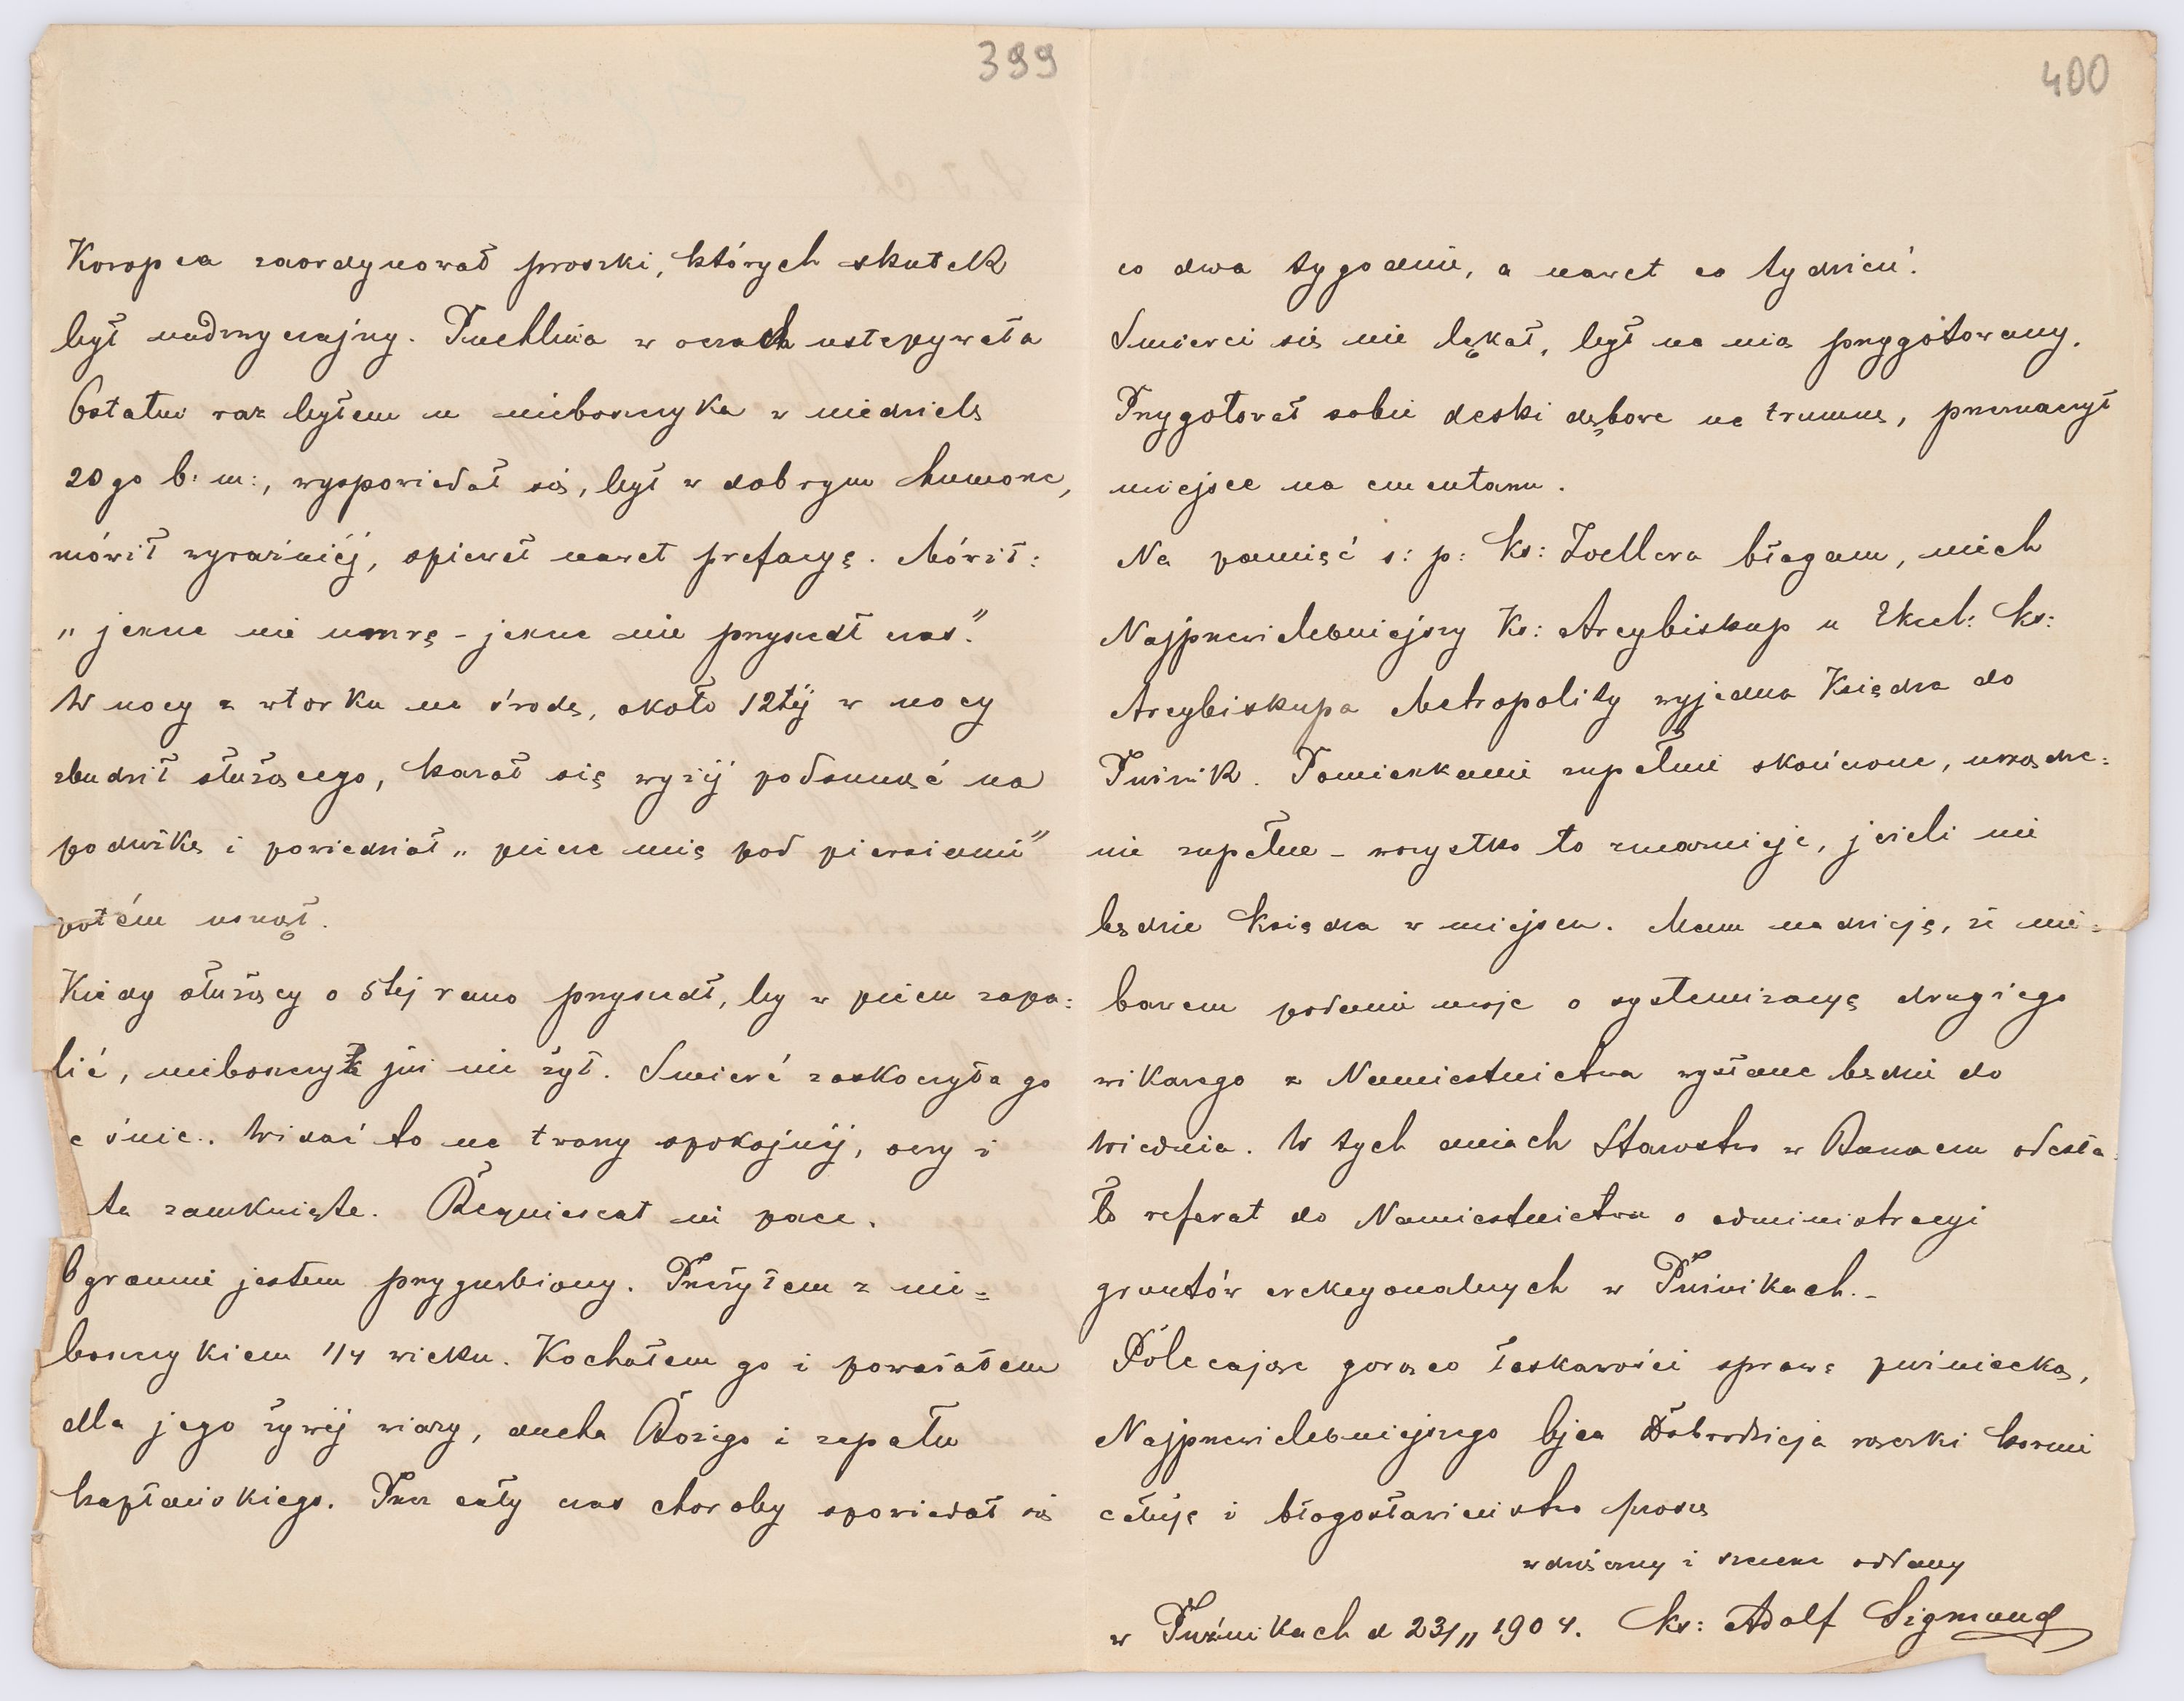 399
Koropca zaordynował proszki, których skutek
był nadzwyczajny. Puchlina w oczach ustępywała
Ostatni raz byłem u nieboszczyka w niedzielę
20go b: m:, wyspowiadał się, był w dobrym humorze,
mówił wyraźniéj, śpiewał nawet prefacyę. Mówił:
„jeszcze nie umrę – jeszcze nie przyszedł czas."
W nocy z wtorku na środę, około 12téj w nocy
zbudził służącego, kazał się wyżéj podsunąć na
poduszkę i powiedział „piecze mię pod piersiami"
potém usnął.
Kiedy służący o 5tej rano przyszedł, by w piecu zapa=
lić, nieboszczyk już nie żył. Śmierć zaskoczyła go
e śnie. Widać to na twarzy spokojnéj, oczy i
ta zamknięte. Requiescat in pace.
Ogromnie jestem przygnębiony. Przeżyłem z nie=
boszczykiem 1/4 wieku. Kochałem go i poważałem
dla jego żywéj wiary, ducha Bożego i zapału
kapłańskiego. Przez cały czas choroby spowiadał się
400
co dwa tygodnie, a nawet co tydzień.
Śmierci się nie lękał, był na nią przygotowany.
Przygotował sobie deski dębowe na trumnę, przeznaczył
miejsce na cmentarzu.
Na pamięć s: p: ks: Zoellera błagam, niech
Najprzewielebniejszy Ks: Arcybiskup u Ekscl: ks:
Arcybiskupa Metropolity wyjedna Księdza do
Puźnik. Pomieszkanie zupełnie skończone, urządze=
nie zupełne – wszystko to zmarnieje, jeżeli nie
będzie księdza w miejscu. Mam nadzieję, że nie=
bawem podanie moje o systemizacyę drugiego
wikarego z Namiestnictwa wysłane będzie do
Wiednia. W tych dniach Starostwo w Buczaczu odesła=
ło referat do Namiestnictwa o administracyi
gruntów erekcyonalnych w Puźnikach. –
Polecając gorąco łaskawości sprawę puźniecką,
Najprzewielebniejszego Ojca Dobrodzieja rączki kornie
całuję i błogosławieństwo proszę
wdzięczny i szczerze oddany
w Puźnikach d 23/11 1904. ks: Adolf Sigmund